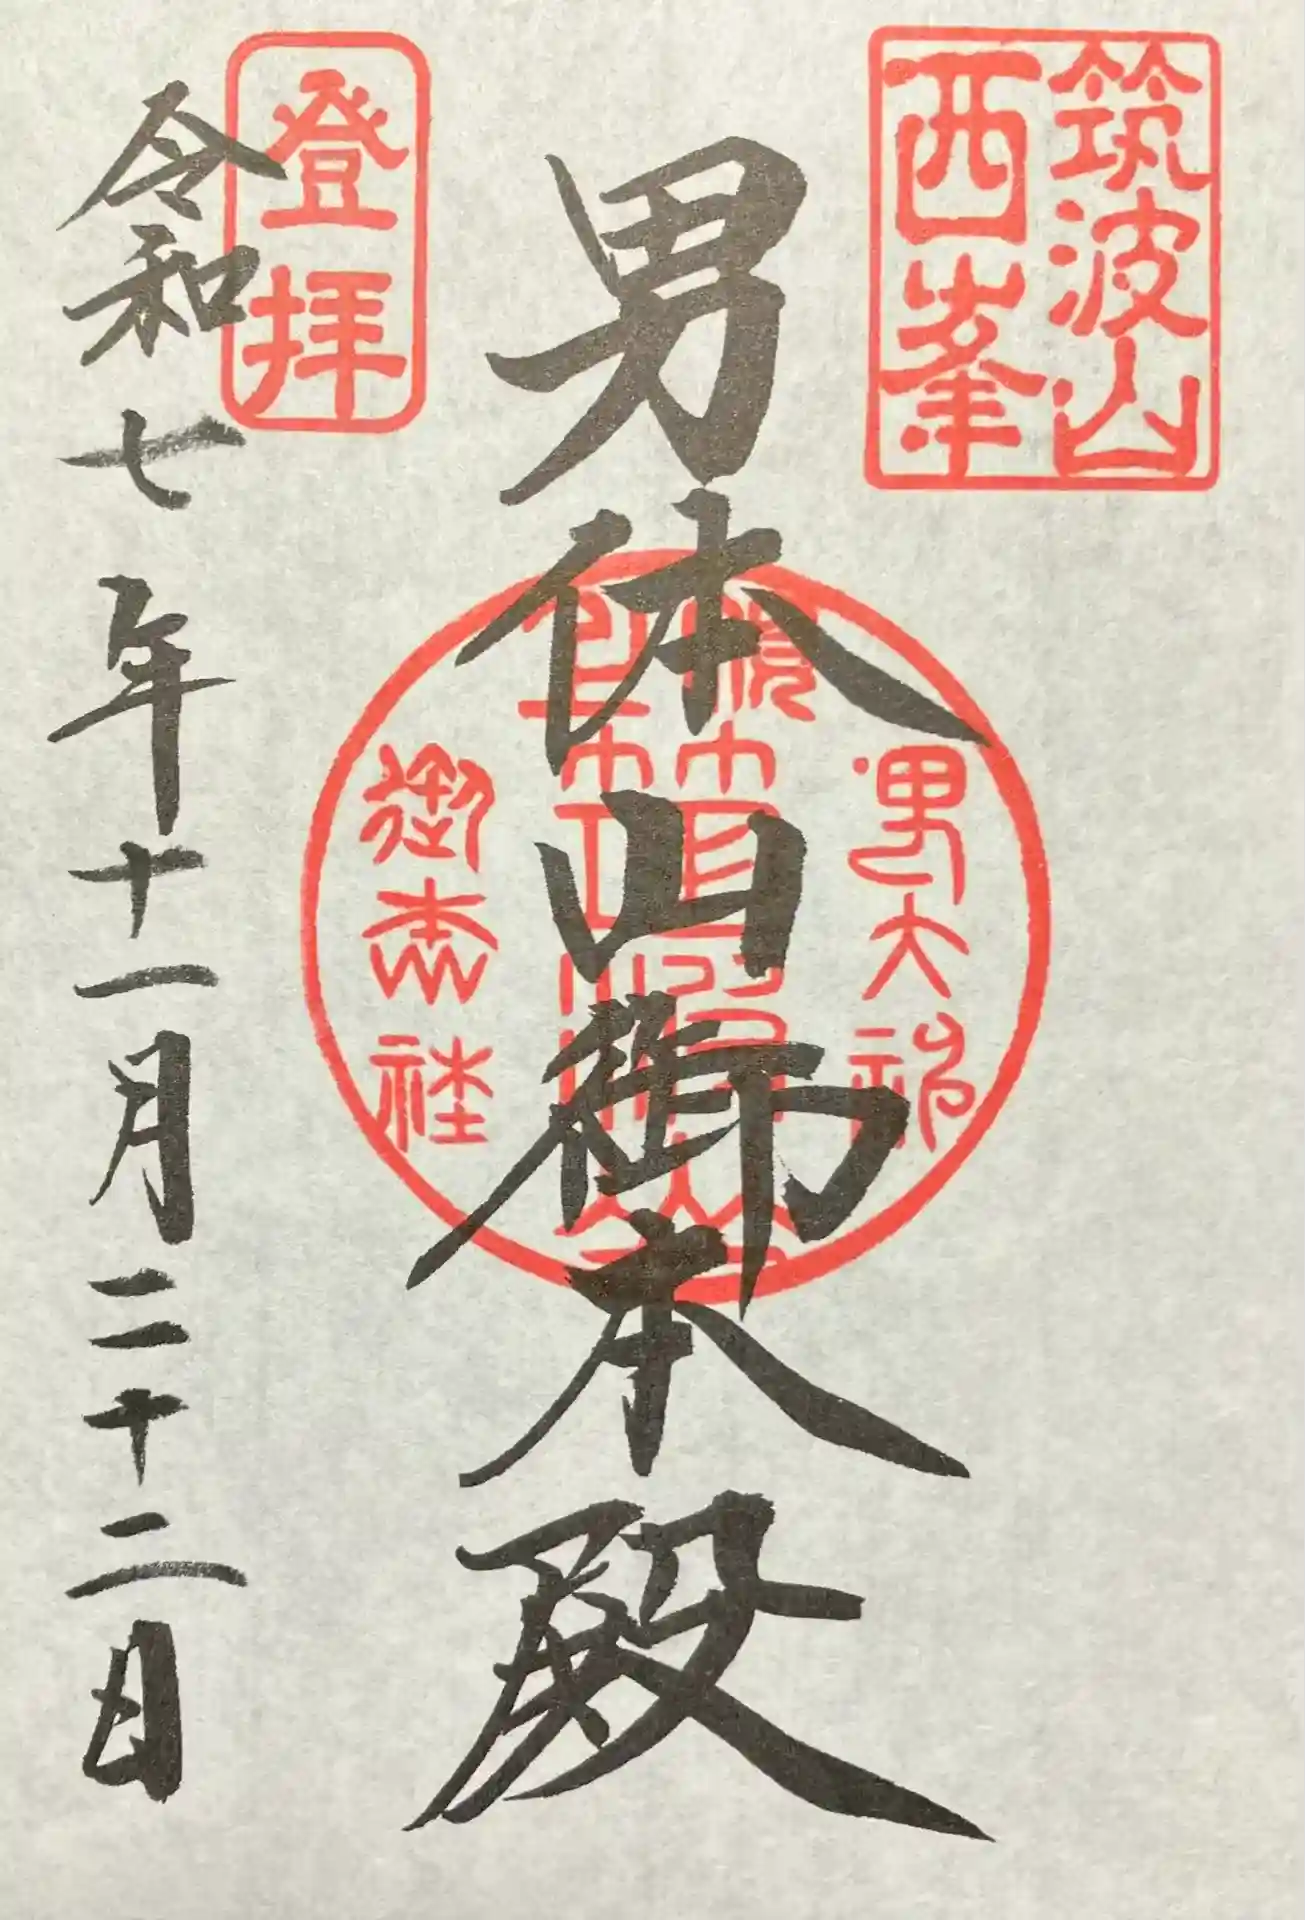 筑波山
西峯
男体山御本殿
男大神
御本社
登拝
令和七年十一月二十二日